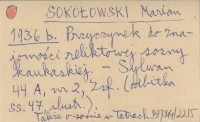 SOKOŁOWSKI Marian
1936 b. Przyczynek do zna-
jomości reliktowej sosny
kaukaskiej. – Sylwan
44 A, nr 2, Zsf. (Odbitka
ss. 47, ilustr.).
Także o sośnie w Tatrach.